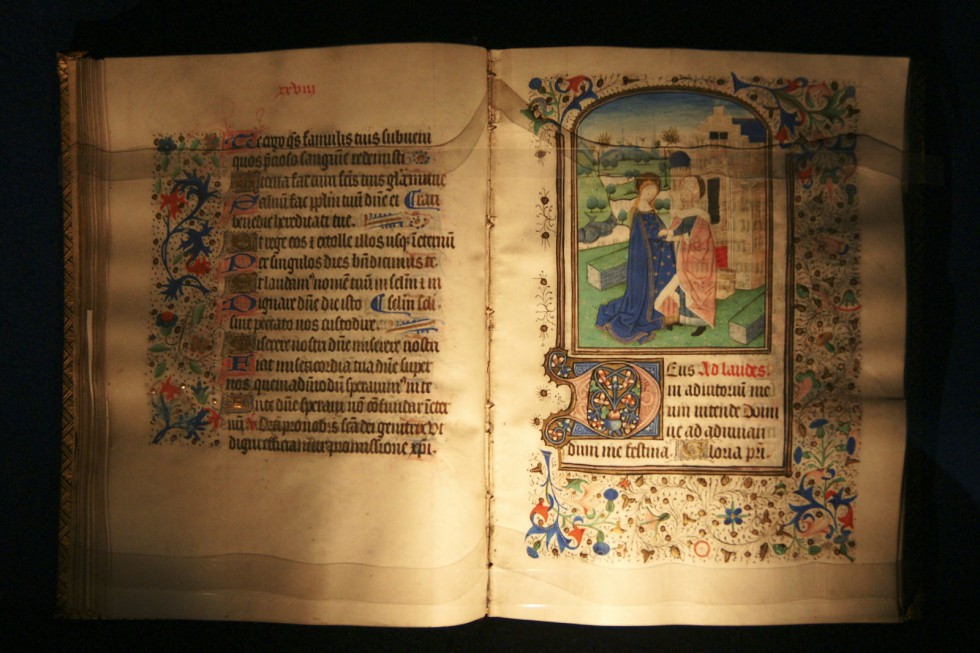 xxviii
Te ergo q̄s famulis tuis subueni
quos p̄cioso sanguīe redemisti
Eterna fac cum sc̄is tuis gl̄a mune
Saluum fac pplm tuū dn̄e et rari
benedic hereditati tue.
Et rege eos ⁊ extolle illos usq̄ ī eternū
Per singulos dies bn̄dicimus te
Et laudam⁹ nomē tuū in sclm̄ ⁊ in
Dignare dn̄e die isto sclm̄ scli
sine peccato nos custodire.
Miserere nostri dn̄e miserere nostri
Fiat misericordia tua dn̄e super
nos quemadmodū sperauim⁹ in te
In te dn̄e speraui nō cōfundar ī eter
nū. Ora pro nobis sc̄a dei genitrix Vt
digni efficiamur promissione xp̄i.
Deus Ad laudes
in adiutoriū me
um intende Domi
ne ad adiuuan
dum me festina. Gloria pri.